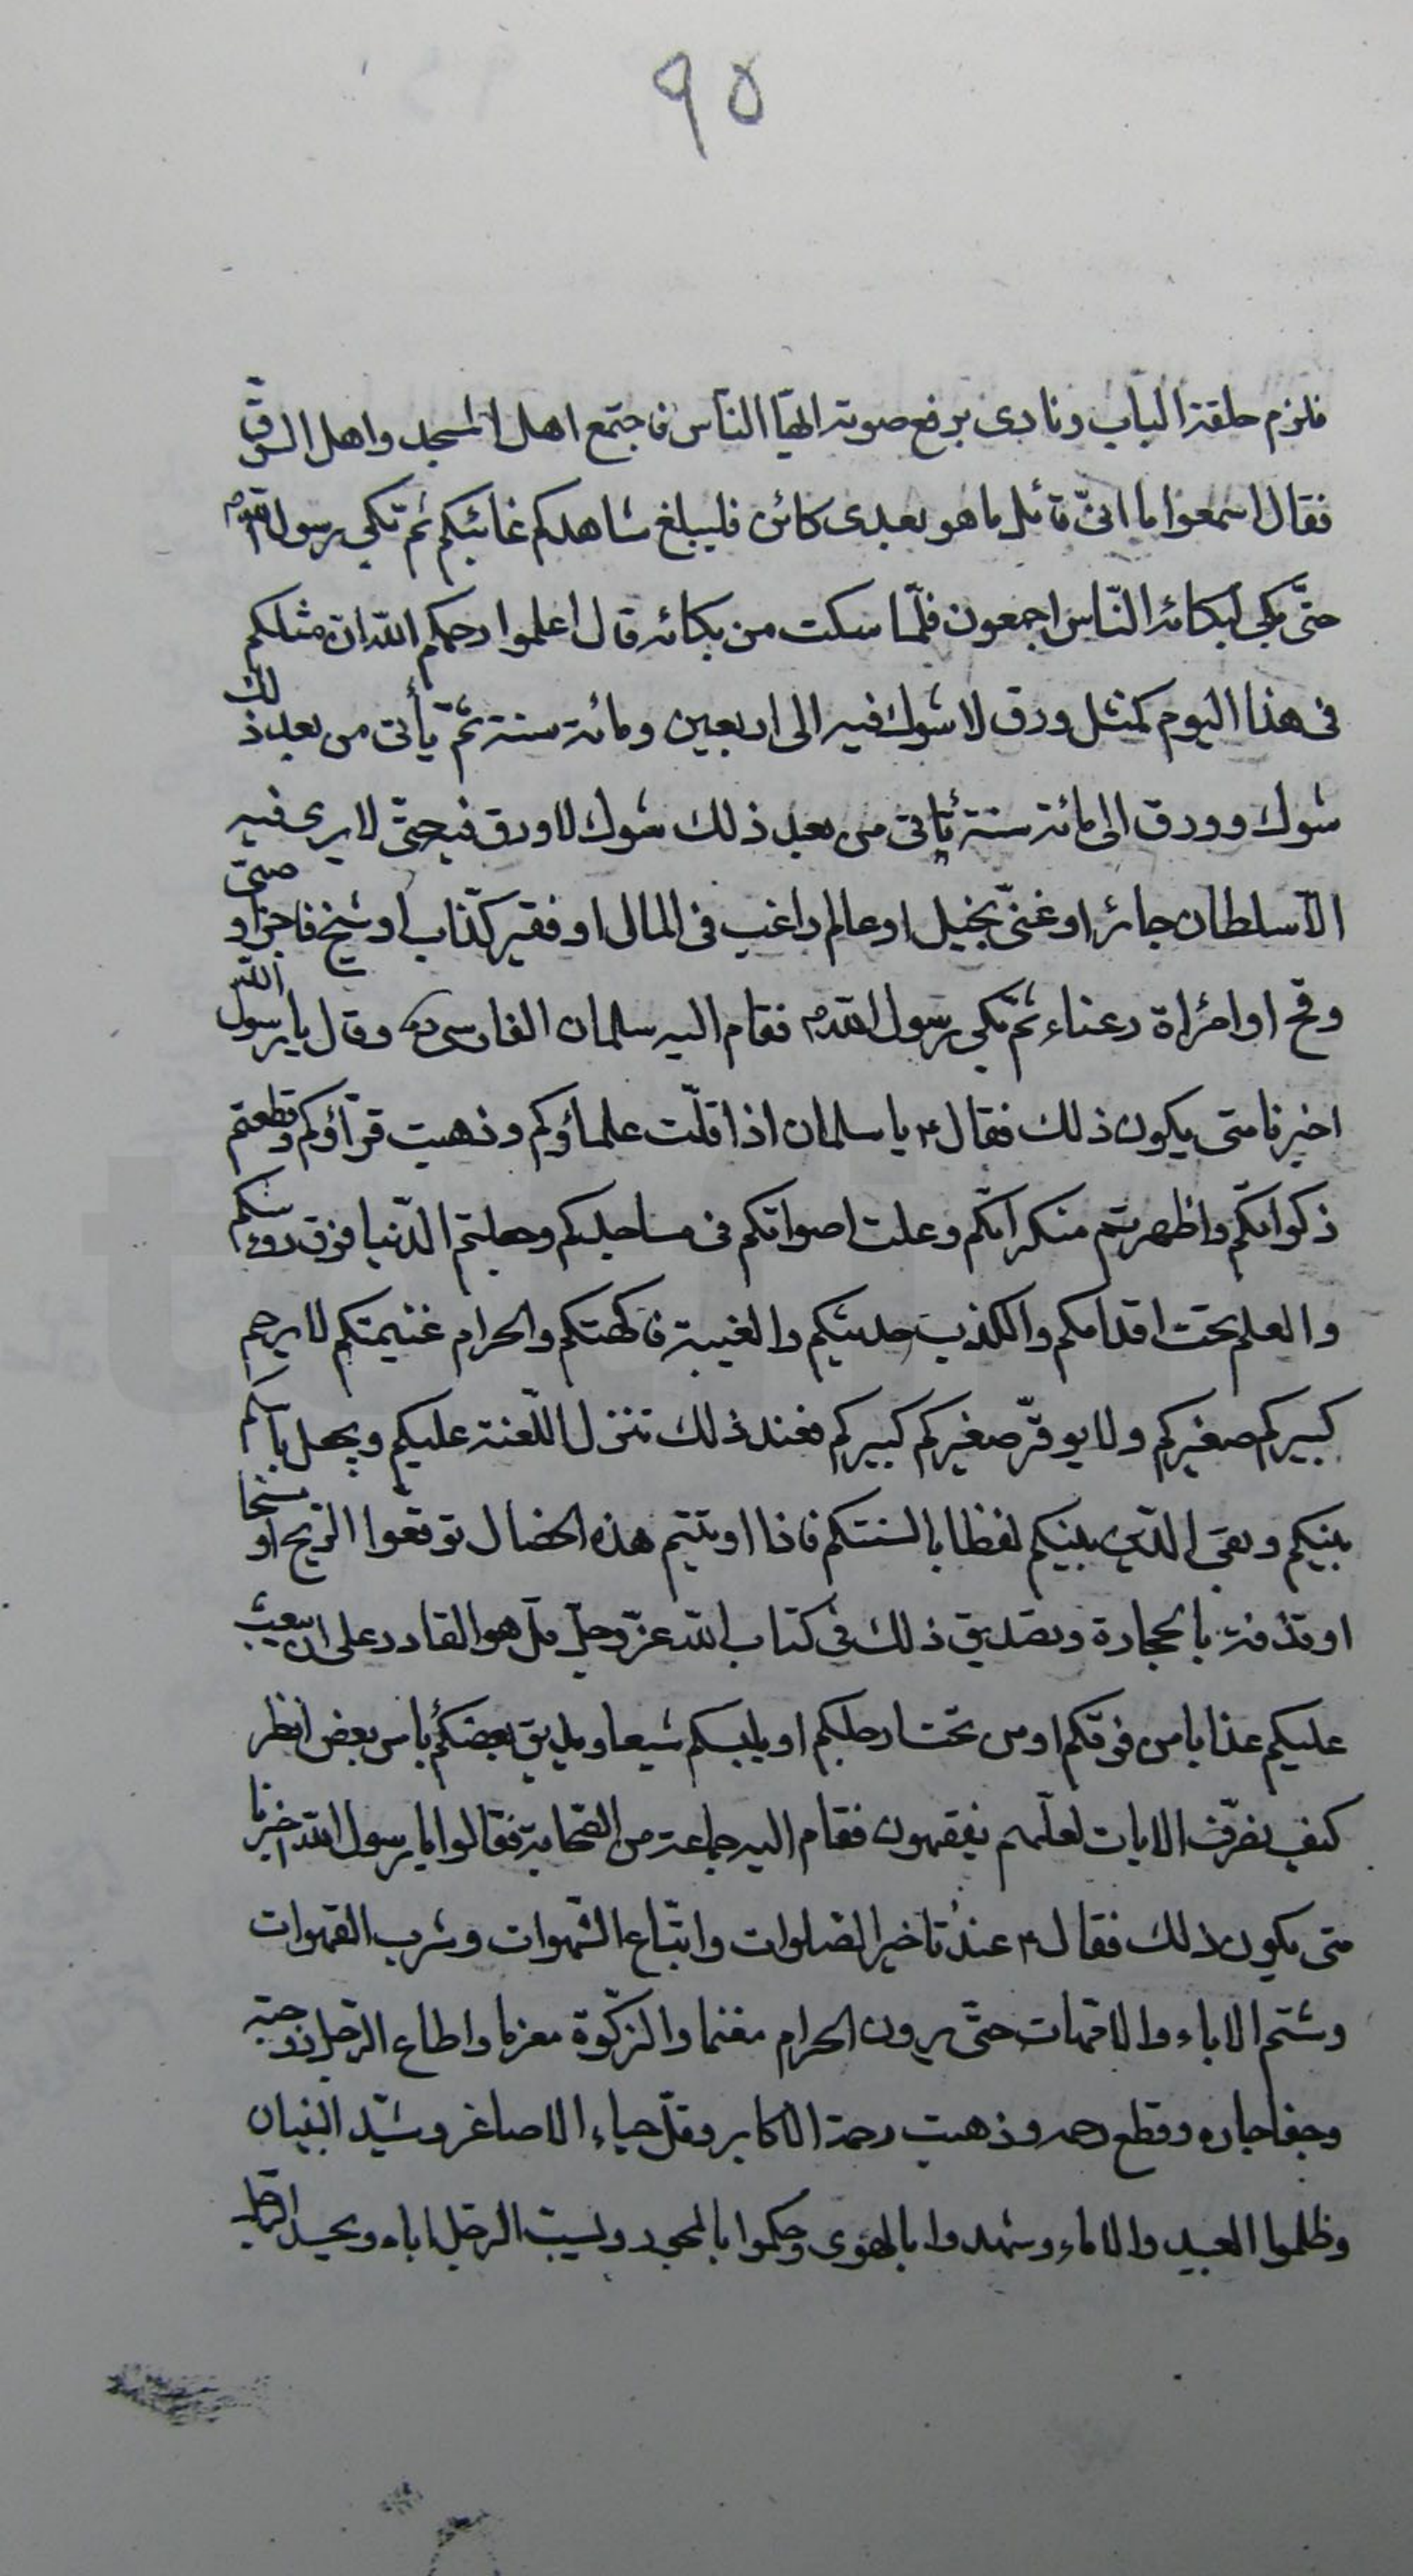 ٩٥
فلزم حلقة الباب ونادى برفع صوته ايّها النّاس فاجتمع اهل المسجد واهل السّوق
فقال اسمعوا ما انّى قائل ما هو بعدى كائن فليبلغ شاهدكم غائبكم ثم بكى رسول اللهم
حتّى بكى لبكائه النّاس اجمعون فلمّا سكت من بكائه قال اعلموا رحمكم الله ان مثلكم
فى هذا اليوم كمثل ورق لا شوك فيه الى اربعين ومائة سنة ثمّ يأتى من بعد ذلك
شوك وورق الى مائة سنة يأتى من بعد ذلك شوك لا ورق فيه حتى لا يرى فيه
الّا سلطان جائر او غنىّ بخيل او عالم راغب فى المال او فقير كذّاب او شيخ فاجر او صبىّ
وقح او امراة رعناء ثمّ بكى رسول اللهم فقام اليه سلمان الفارسى ره وقال يا رسول الله
اخبرنا متى يكون ذلك فقال م يا سلمان اذا قلّت علماؤكم وذهبت قرّاؤكم وقطعتم
زكواتكم واظهرتم منكراتكم وعلت اصواتكم فى مساجدكم وجعلتم الدّنيا فوق رؤسكم
والعلم تحت اقدامكم والكذب حديثكم والغيبة فاكهتكم والحرام غنيمتكم لا يرحم
كبيركم صغيركم ولا يوقّر صغيركم كبيركم فعند ذلك تنزل اللّعنة عليكم ويجعل باسكم
بينكم وبقى الدّين بينكم لفظا بالسنتكم فاذا اوتيتم هذه الخصال توقعوا الريح او مسخا
او قذفة بالحجارة وتصديق ذلك فى كتاب الله عزّ وجلّ قل هو القادر على ان يبعث
عليكم عذابا من فوقكم او من تحت ارجلكم او يلبسكم شيعا ويذيق بعضكم بأس بعض انظر
كيف نصرّف الايات لعلّهم يفقهون فقام اليه جماعة من الصّحابة فقالوا يا رسول الله اخبرنا
متى يكون ذلك فقال م عند تأخير الصّلوات واتّباع الشّهوات وشرب القهوات
وشتم الاباء والامّهات حتّى يرون الحرام مغنما والزّكوة مغرما واطاع الرّجل زوجته
وجفا جاره وقطع رحمه وذهبت رحمة الاكابر وقلّ حياء الاصاغر وشيّد البنيان
وظلموا العبيد والاماء وشهدوا بالهوى وحكموا بالجور ويسبّ الرجل اباه ويحسد الرّجل